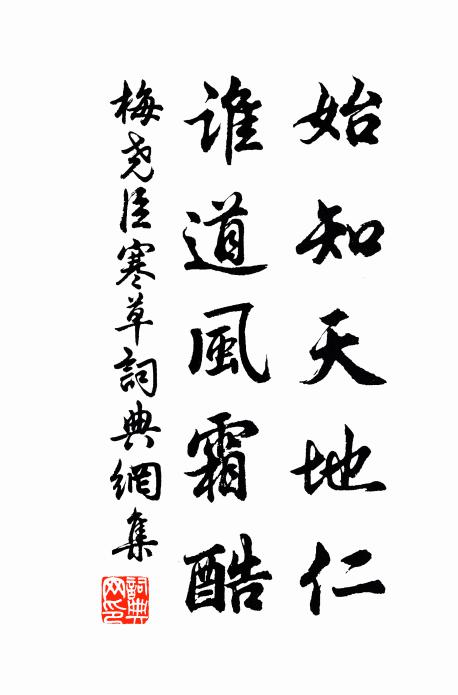 始知天地仁
谁道風霜酷
梅尧臣寒草詞典網集
詞典网印